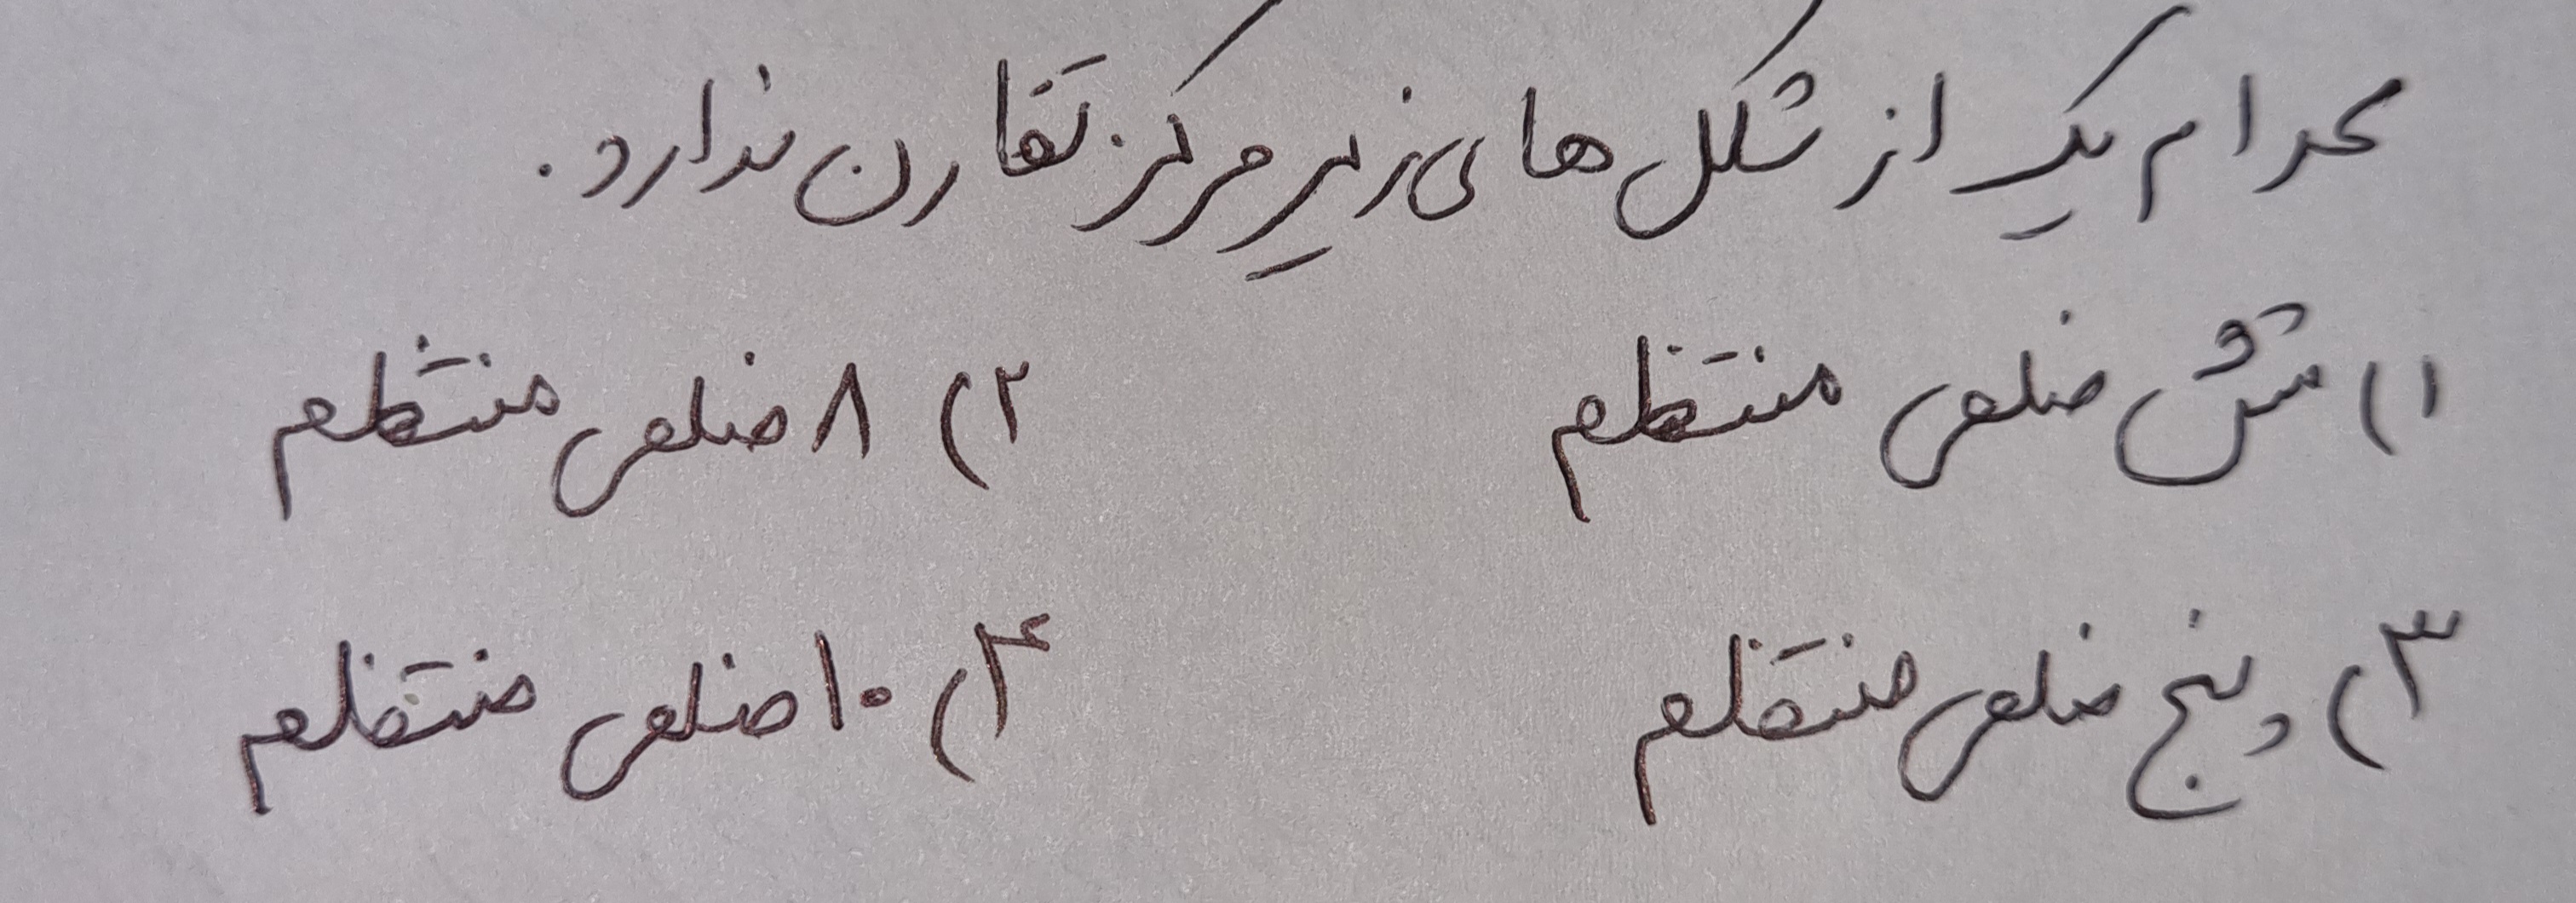 کدام یک از شکل های زیر مرکز تقارن ندارد.
۱) شش ضلعی منتظم ۲) ۸ ضلعی منتظم
۳) پنج ضلعی منتظم ۴) ۱۰ ضلعی منتظم